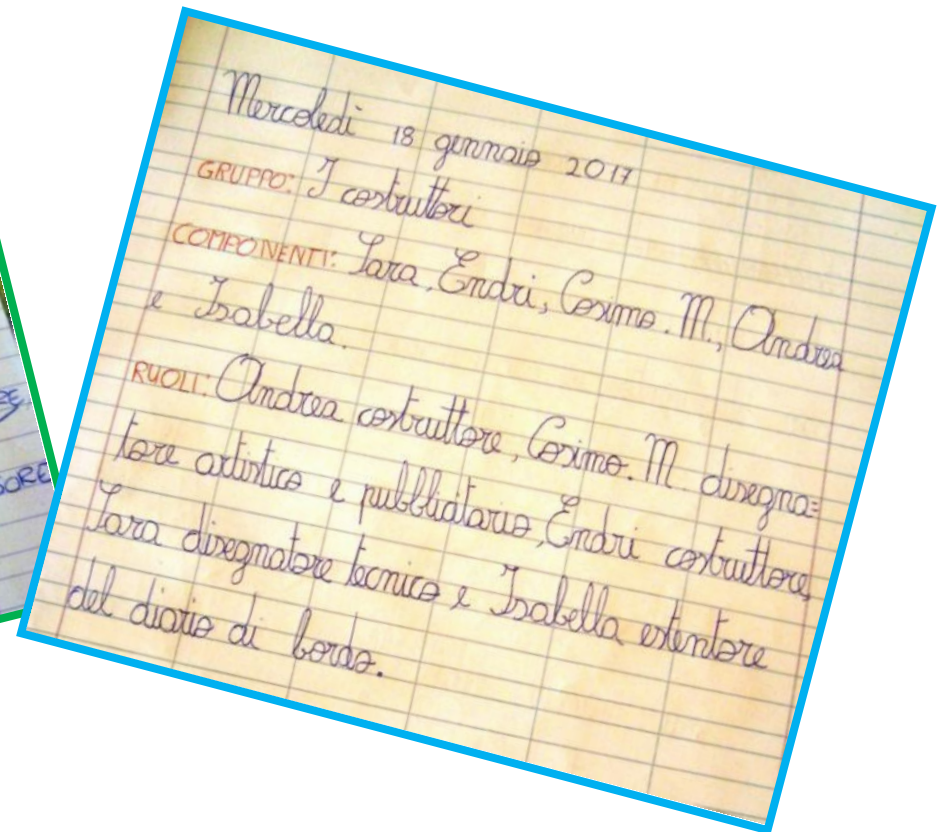 Mercoledì 18 gennaio 2017
GRUPPO: I costruttori
COMPONENTI: Sara, Endri, Cosimo. M., Andrea
e Isabella.
RUOLI: Andrea costruttore, Cosimo. M. disegna=
tore artistico e pubblicitario, Endri costruttore,
Sara disegnatore tecnico e Isabella estentore
del diario di bordo.